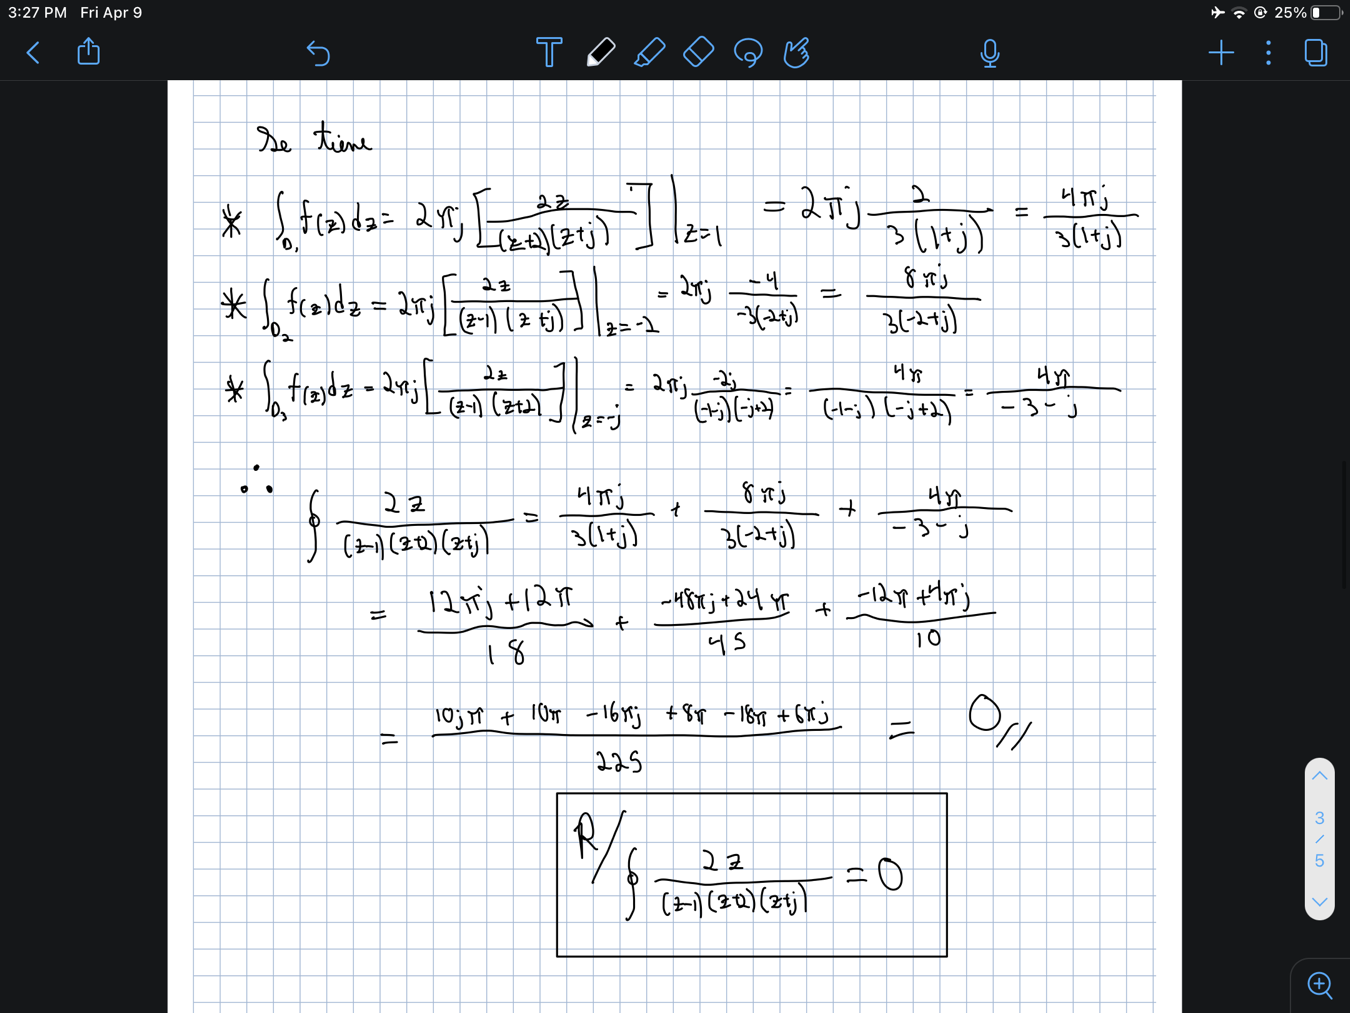 3:27 PM Fri Apr 9 25%
T
Se tiene
* ∫_{D₁} f(z)dz = 2πj [2z / (z+2)(z+j)] |_{z=1} = 2πj 2 / 3(1+j) = 4πj / 3(1+j)
* ∫_{D₂} f(z)dz = 2πj [2z / (z-1)(z+j)] |_{z=-2} = 2πj -4 / -3(-2+j) = 8πj / 3(-2+j)
* ∫_{D₃} f(z)dz = 2πj [2z / (z-1)(z+2)] |_{z=-j} = 2πj -2j / (-1-j)(-j+2) = 4π / (-1-j)(-j+2) = 4π / -3-j
∴
∮ 2z / (z-1)(z+2)(z+j) = 4πj / 3(1+j) + 8πj / 3(-2+j) + 4π / -3-j
= 12πj+12π / 18 + -48πj+24π / 45 + -12π+4πj / 10
= 10jπ + 10π -16πj +8π -18π +6πj / 225 = 0//
R/ ∮ 2z / (z-1)(z+2)(z+j) = 0
3
/
5